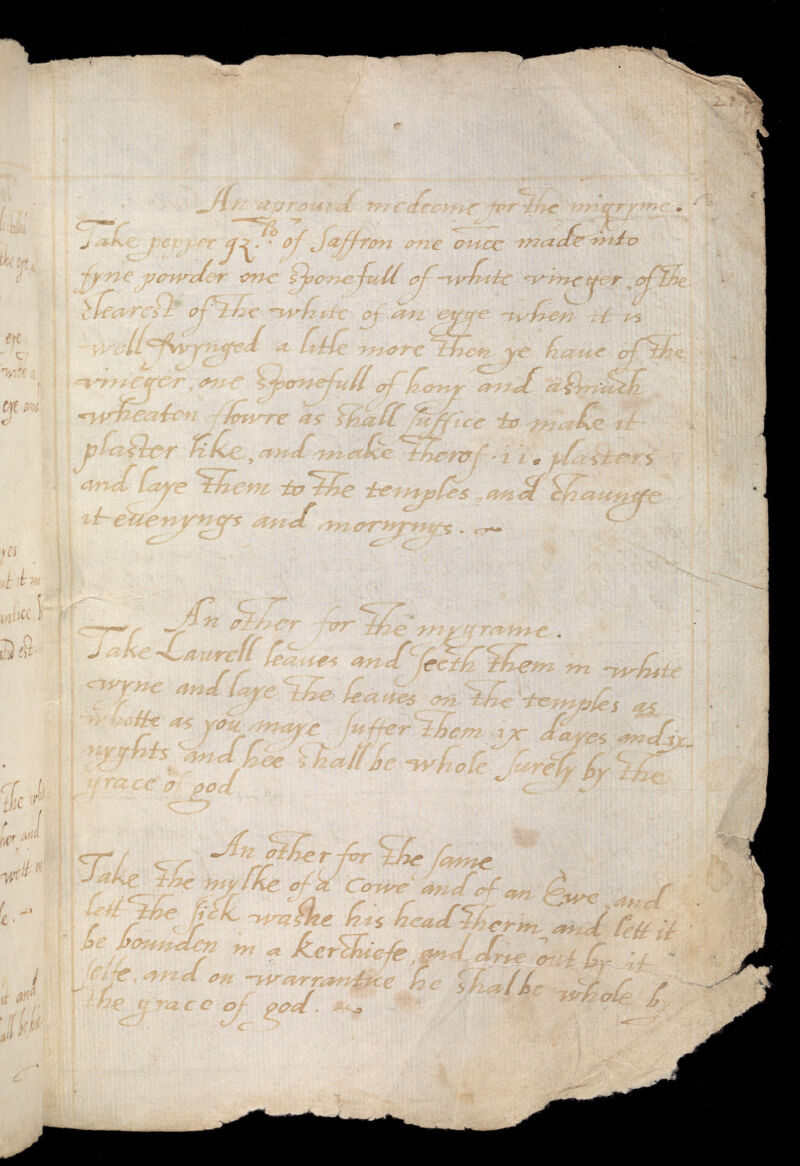 An aprouid medecine for the migryme.
Take pepper qz. of Saffron one ounce made into
fyne powder one sponefull of white vineger, of the
clearest of the white of an egge when it is
well swynged a litle more then ye haue of the
vineger, one sponefull of hony and asmuch
wheaton flowre as shall suffice to make it
plaster like, and make therof .ii. plasters
and laye them to the temples, and chaunge
it euenyngs and mornyngs.
An other for the mygrame.
Take Laurell leaues and seeth them in white
wyne and laye the leaues on the temples as
whotte as you maye suffer them ix dayes and ix.
nyghts and hee shall be whole surely by the
grace of god
An other for the same
Take the mylke of a cowe and of an Ewe, and
lett the sick washe his head therin, and lett it
be bounden in a kerchiefe, and drie out by it
selfe, and on warrantice he shalbe whole by
the grace of god.